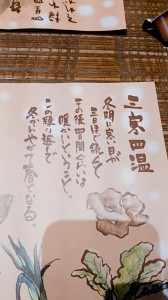 三寒四温
冬期に寒い日が
三日ほど続くと
その後四日間くらいは
暖かいということ。
この繰り返しで
冬からやがて春となる。